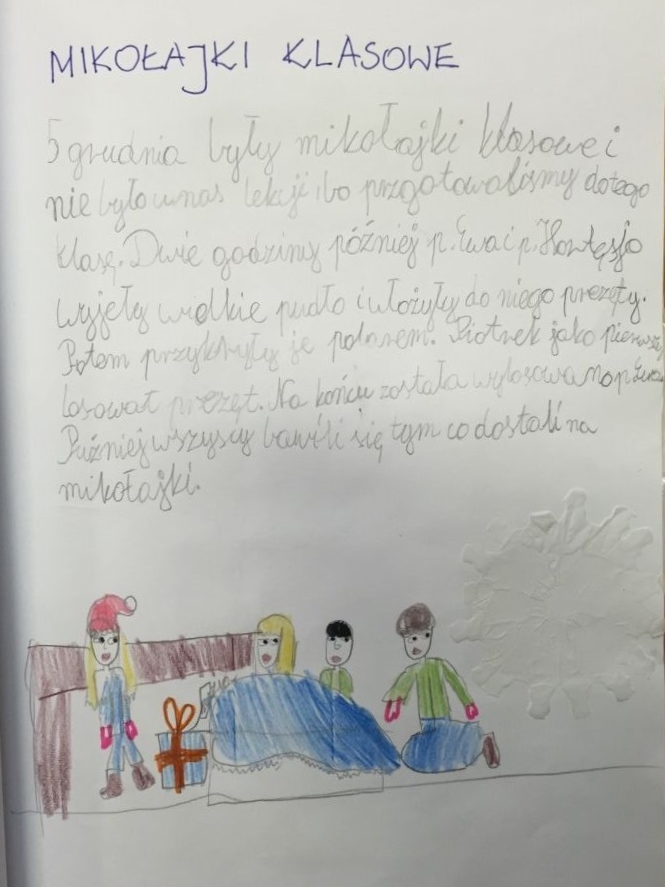 MIKOŁAJKI KLASOWE
5 grudnia były mikołajki klasowe i
nie było unas lekcji, bo przgotowaliśmy dotego
klasę. Dwie godziny później p. Ewa i p.
wyjęły wielkie pudło i włożyły do niego prezęty.
Potem przykryły je polarem. Piotrek jako pierwszy
losował prezęt. Na końcu została wylosowana p. Ewa
Puźniej wszyscy bawili się tym co dostali na
mikołajki.